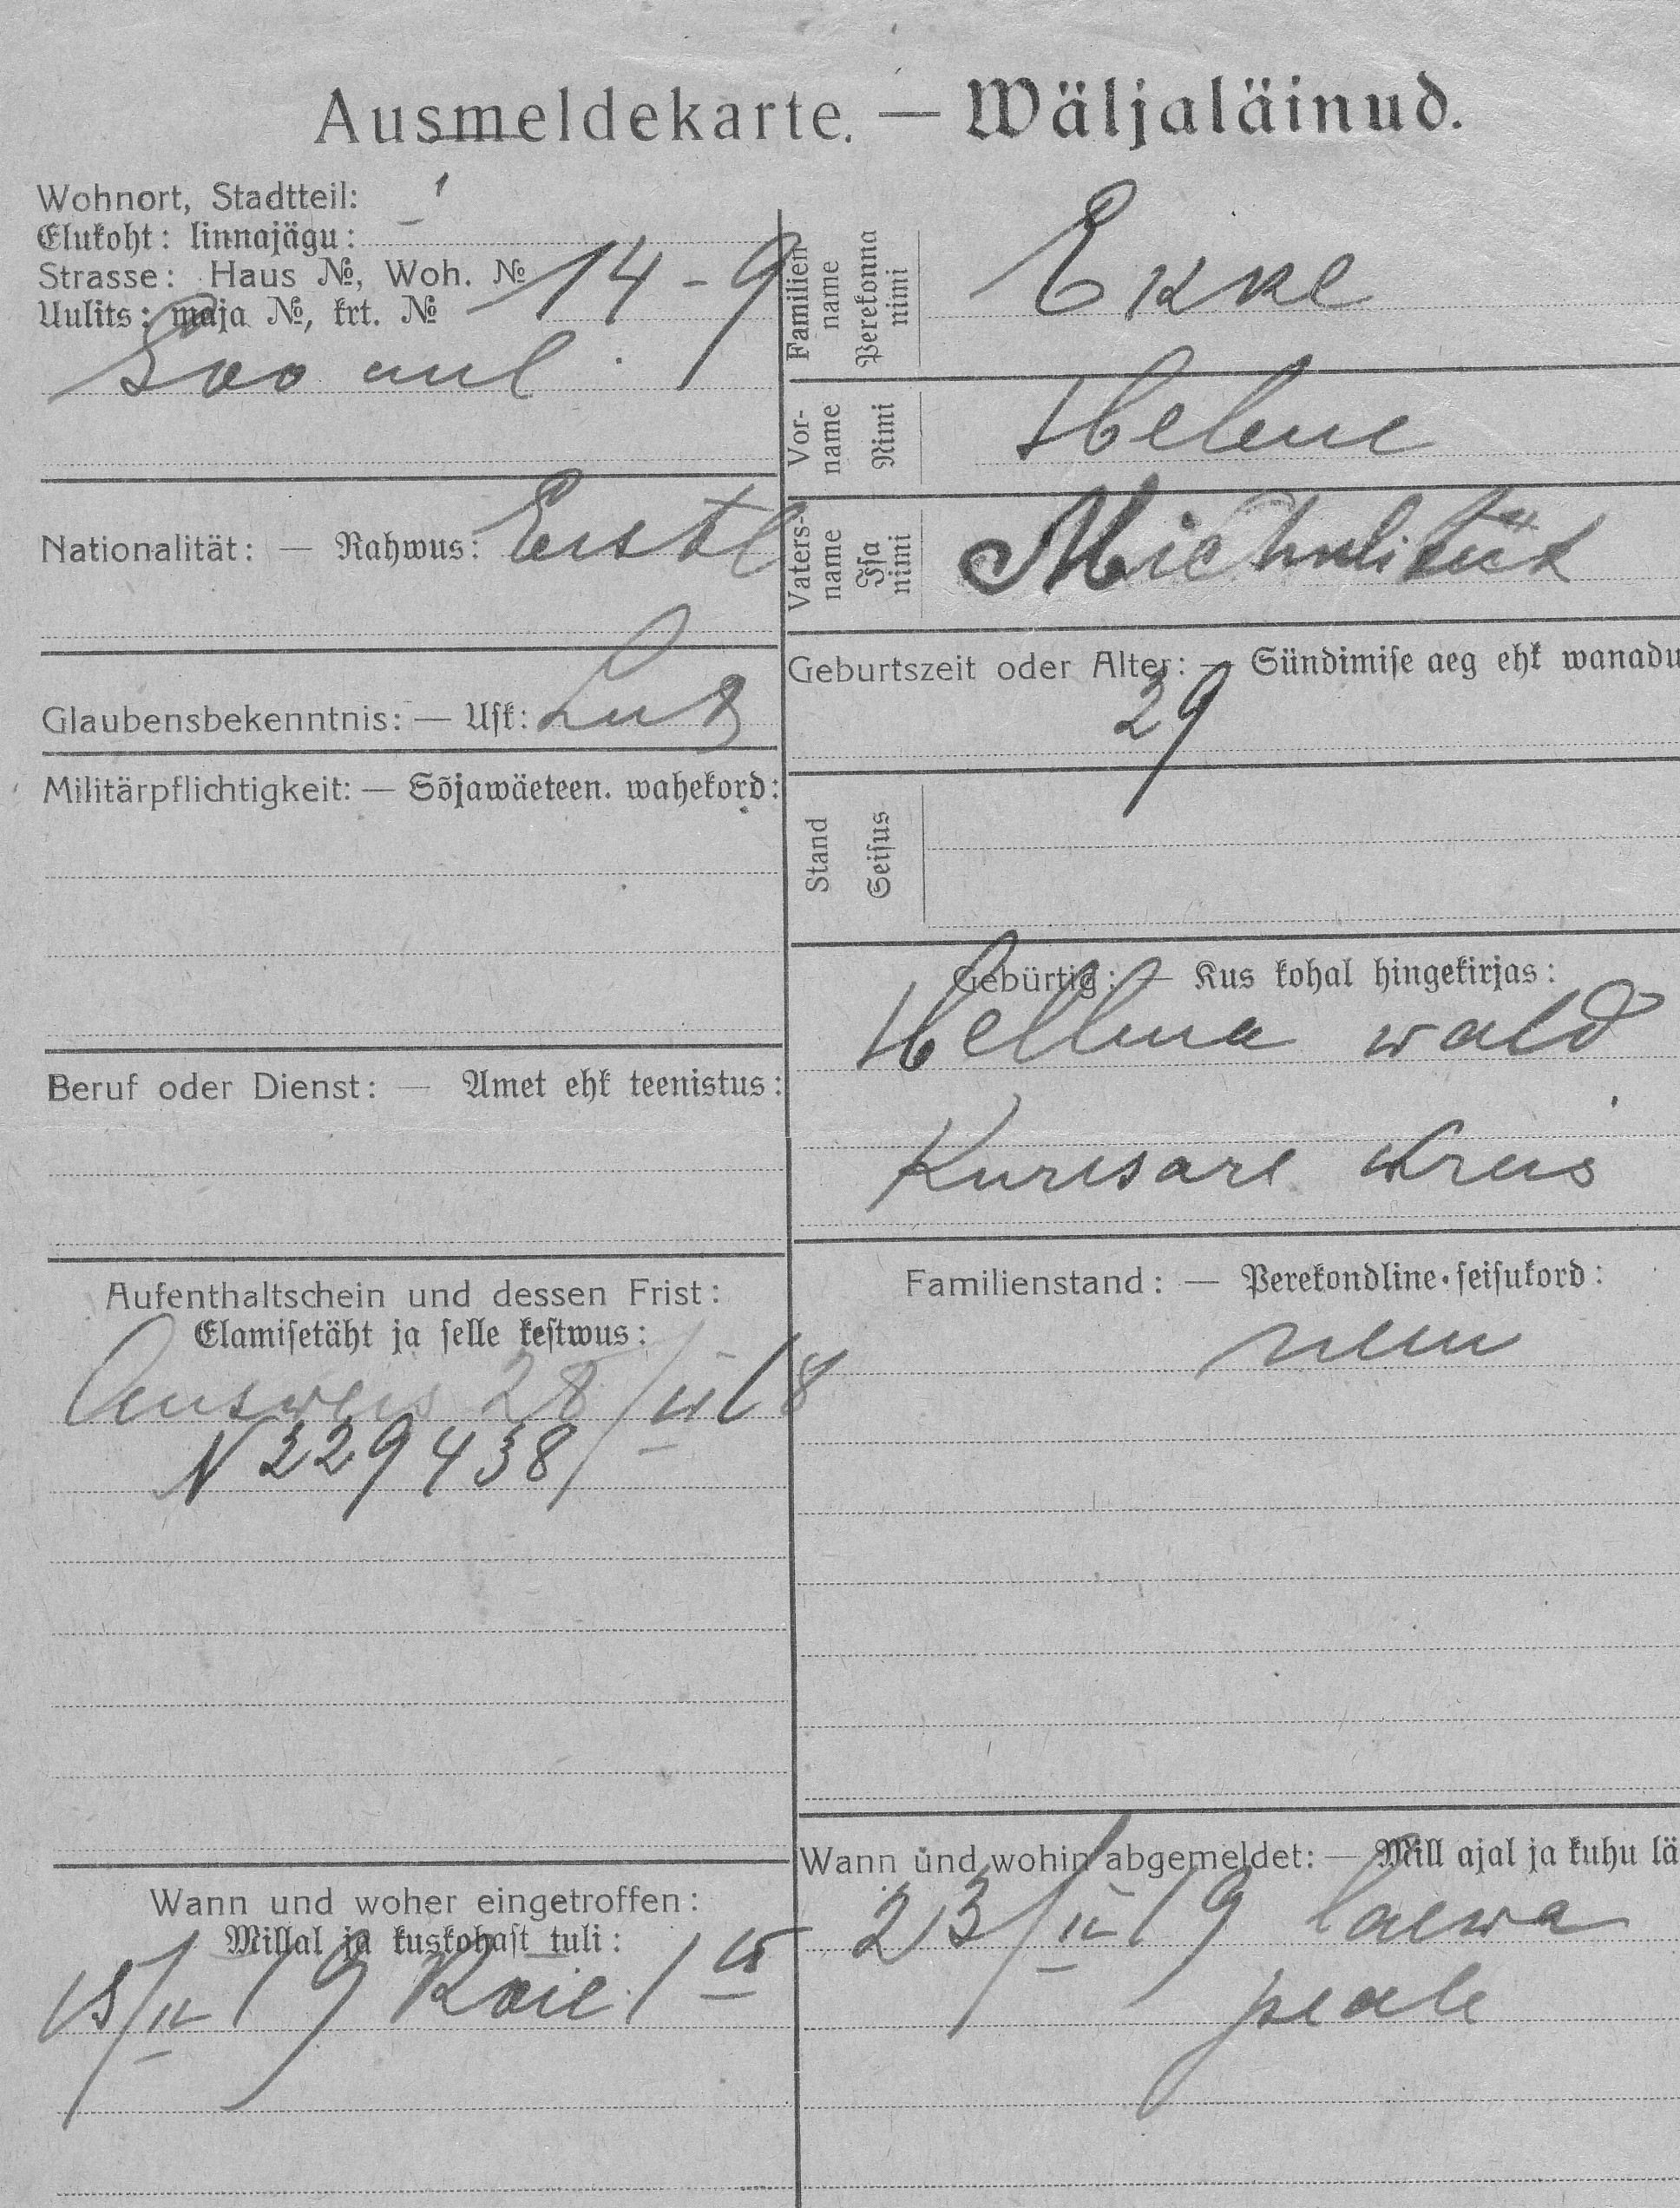 Ausmeldekarte. — Wäljaläinud.
Wohnort, Stadtteil:
Elukoht: linnajägu:
Strasse: Haus №, Woh. №
Uulits: maja №, krt. № 14 - 9
Soo uul.
Nationalität: — Rahwus: Eestl
Glaubensbekenntnis: — Usk: Lut
Militärpflichtigkeit: — Sõjawäeteen. wahekord:
Beruf oder Dienst: — Amet ehk teenistus:
Aufenthaltschein und dessen Frist:
Elamisetäht ja selle kestwus:
Ausweis 28/ 18
N 229438
Wann und woher eingetroffen:
Millal ja kuskohast tuli:
15/II 19
Familien name Perekonna nimi
Ekke
Vor-name Nimi
Helene
Vaters-name Isa nimi
Michali tüt
Geburtszeit oder Alter: — Sündimise aeg ehk wanadu
29
Stand Seisus
Gebürtig: — Kus kohal hingekirjas:
Hellma wald
Kuresare Kreis
Familienstand: — Perekondline seisukord:
neiu
Wann und wohin abgemeldet: — Mill ajal ja kuhu lä
23/II 19 laewa
peale